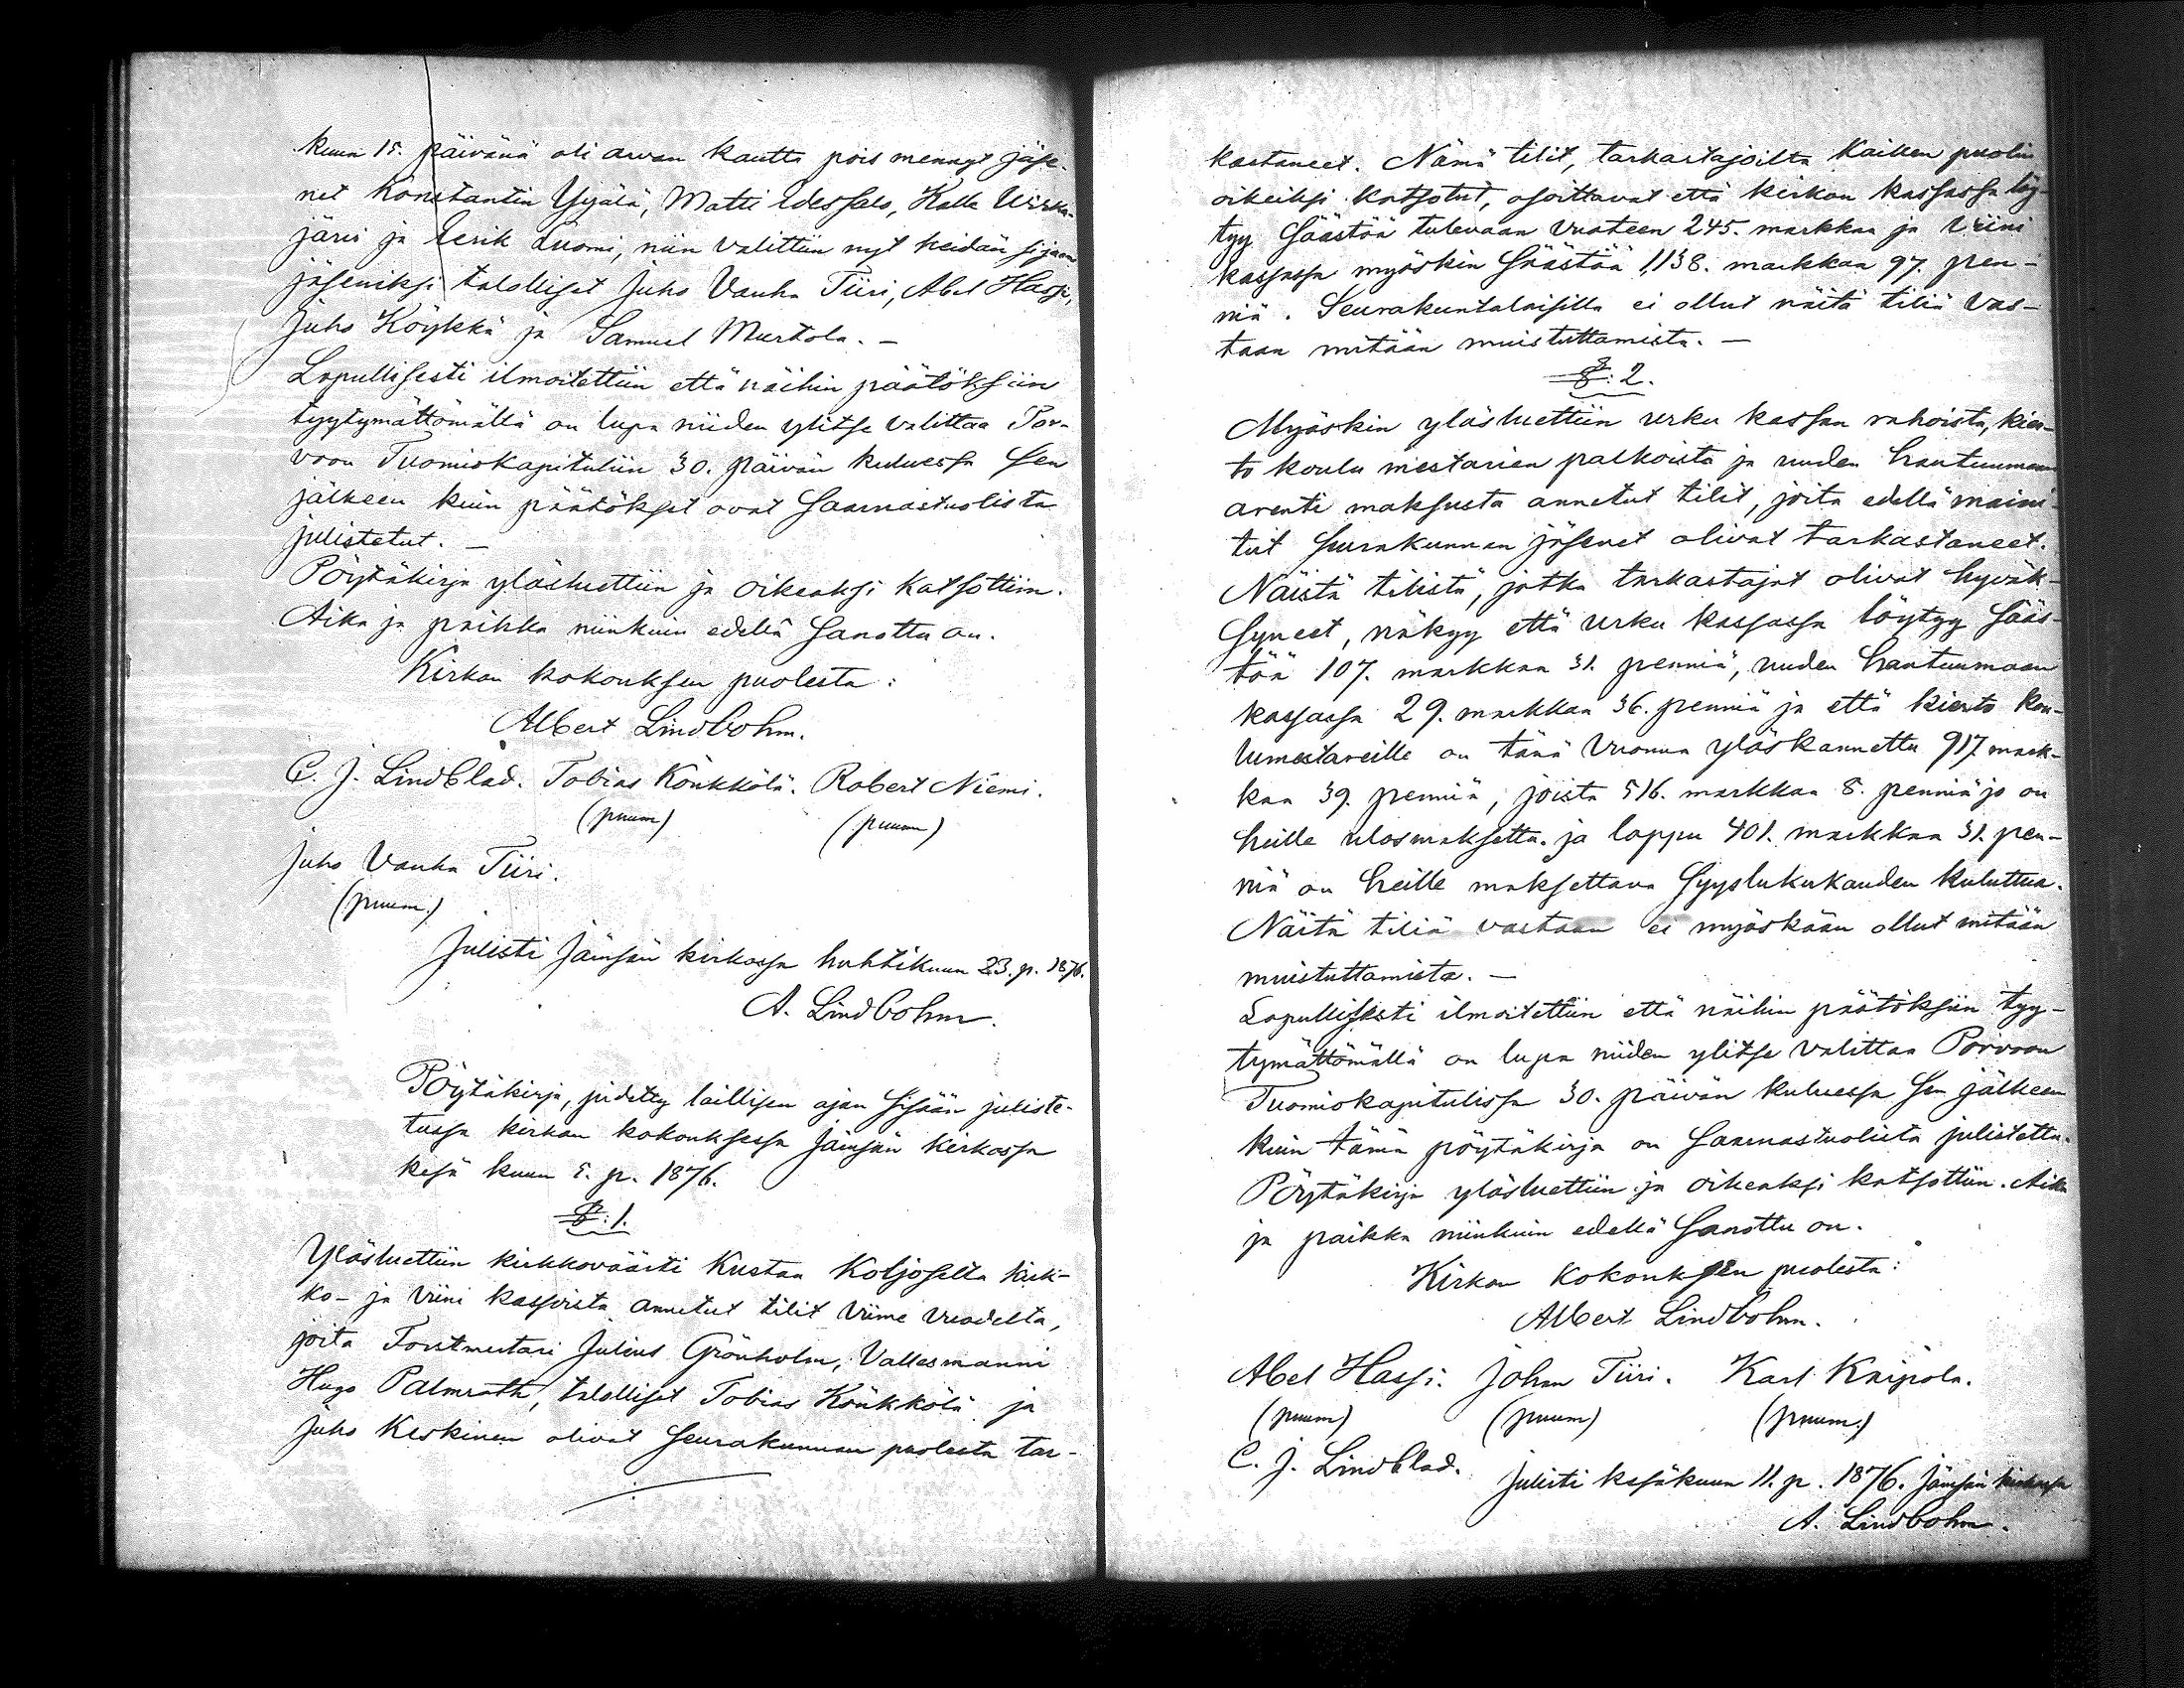 kuun 15. päivänä oli arvan kautta pois mennyt jäse-
net Konstantin Yijälä, Matti Edessalo, Kalle Wirka-
järvi ja Eerik Luomi, niin valittiin nyt heidän sijaan
jäseniksi talolliset Juho Vanha Tiiri, Abel Hassi,
Juho Köykkä ja Samuel Murtola. —
Lopullisesti ilmoitettiin että näihin päätöksiin
tyytymättömällä on lupa niiden ylitse valittaa Por-
voon Tuomiokapituliin 30. päivän kuluessa sen
jälkeen kuin päätökset ovat Saarnastuolista
julistetut. —
Pöytäkirja yläsluettiin ja oikeaksi katsottiin.
Aika ja paikka niinkuin edellä sanottu on.
Kirkon kokouksen puolesta:
Albert Lindbohm.
C. J. Lindblad. Tobias Könkkölä. Robert Niemi.
(puum) (puum)
Juho Vanha Tiiri.
(puum.)
Julisti Jämsän kirkossa huhtikuun 23. p. 1876.
A. Lindbohm.
Pöytäkirja, pidetty laillisen ajan sisään juliste-
tussa kirkon kokouksessa Jämsän kirkossa
kesä kuun 5. p. 1876.
§: 1.
Yläsluettiin kirkkoväärti Kustaa Koljoselta kirk-
ko- ja viini kassoista annetut tilit viime vuodelta,
joita Forstmestari Julius Grönholm, Vallesmanni
Hugo Palmroth, talolliset Tobias Könkkölä ja
Juho Keskinen olivat seurakunnan puolesta tar-
kastaneet. Nämä tilit, tarkastajoilta kaiken puolin
oikeiksi katsotut, osoittavat että kirkon kassassa löy-
tyy säästöä tulevaan vuoteen 245. markkaa ja viini
kassassa myöskin säästöä 1,138. markkaa 97. pen-
niä. Seurakuntalaisilla ei ollut näitä tiliä vas-
taan mitään muistuttamista. —
§: 2.
Myöskin yläsluettiin urku kassan rahoista, kier-
to koulu mestarien palkoista ja uuden hautuumaan
arenti maksusta annetut tilit, joita edellä maini-
tut seurakunnan jäsenet olivat tarkastaneet.
Näistä tilistä, jotka tarkastajat olivat hyväk-
syneet, näkyy että urku kassassa löytyy sääs-
töä 107. markkaa 31. penniä, uuden hautuumaan
kassassa 29. markkaa 36. penniä ja että kierto kou-
lumestareille on tänä vuonna yläskannettu 917 mark-
kaa 39. penniä, joista 516. markkaa 8. penniä jo on
heille ulosmaksettu. ja loppu 401. markkaa 31. pen-
niä on heille maksettava syyslukukauden kuluttua.
Näitä tiliä vastaan ei myöskään ollut mitään
muistuttamista. —
Lopullisesti ilmoitettiin että näihin päätöksiin tyy-
tymättömällä on lupa niiden ylitse valittaa Porvoon
Tuomiokapitulissa 30. päivän kuluessa sen jälkeen
kuin tämä pöytäkirja on saarnastuolista julistettu.
Pöytäkirja yläsluettiin ja oikeaksi katsottiin. Aika
ja paikka niinkuin edellä sanottu on.
Kirkon kokouksen puolesta:
Albert Lindbohm.
Abel Hassi. Johan Tiiri. Karl Kaipola.
(puum) (puum) (puum.)
C. J. Lindblad.
Julisti kesäkuun 11. p. 1876. Jämsän kirkossa
A. Lindbohm.